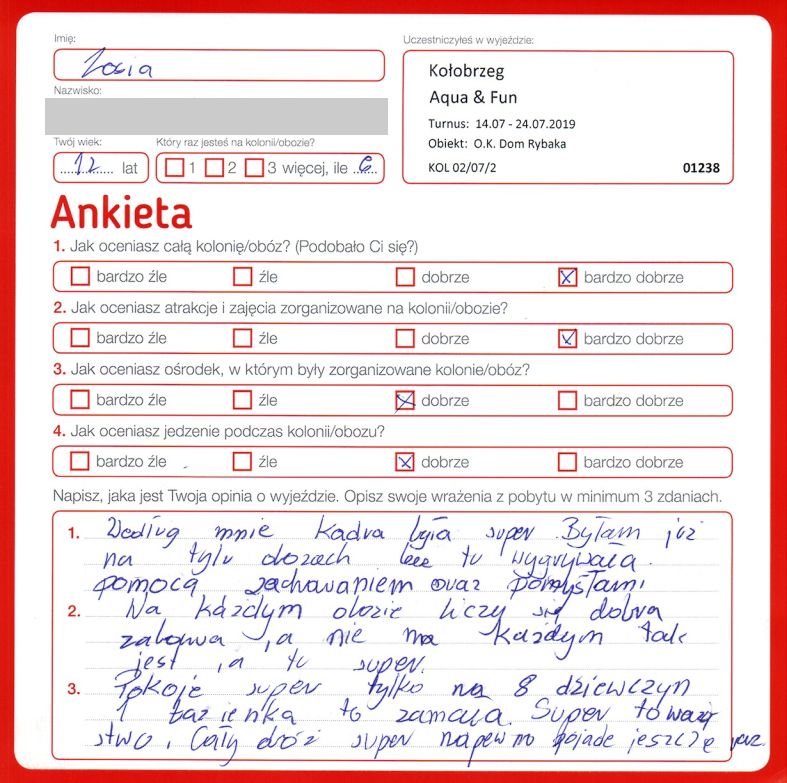 Imię:
Zosia
Nazwisko:
Twój wiek:
12 lat
Który raz jesteś na kolonii/obozie?
1 2 3 więcej, ile 6
Uczestniczyłeś w wyjeździe:
Kołobrzeg
Aqua & Fun
Turnus: 14.07 - 24.07.2019
Obiekt: O.K. Dom Rybaka
KOL 02/07/2 01238
Ankieta
1. Jak oceniasz całą kolonię/obóz? (Podobało Ci się?)
bardzo źle źle dobrze bardzo dobrze
2. Jak oceniasz atrakcje i zajęcia zorganizowane na kolonii/obozie?
bardzo źle źle dobrze bardzo dobrze
3. Jak oceniasz ośrodek, w którym były zorganizowane kolonie/obóz?
bardzo źle źle dobrze bardzo dobrze
4. Jak oceniasz jedzenie podczas kolonii/obozu?
bardzo źle źle dobrze bardzo dobrze
Napisz, jaka jest Twoja opinia o wyjeździe. Opisz swoje wrażenia z pobytu w minimum 3 zdaniach.
1. Według mnie kadra była super. Byłam już
na tylu obozach tu wygrywała
pomocą zachowaniem oraz pomysłami
2. Na każdym obozie liczy się dobra
zabawa, a nie na każdym tak
jest, a tu super.
3. Pokoje super tylko na 8 dziewczyn
1 łazienka to zamała. Super towarzy
stwo, Cały obóz super napewno pojadę jeszcze raz.